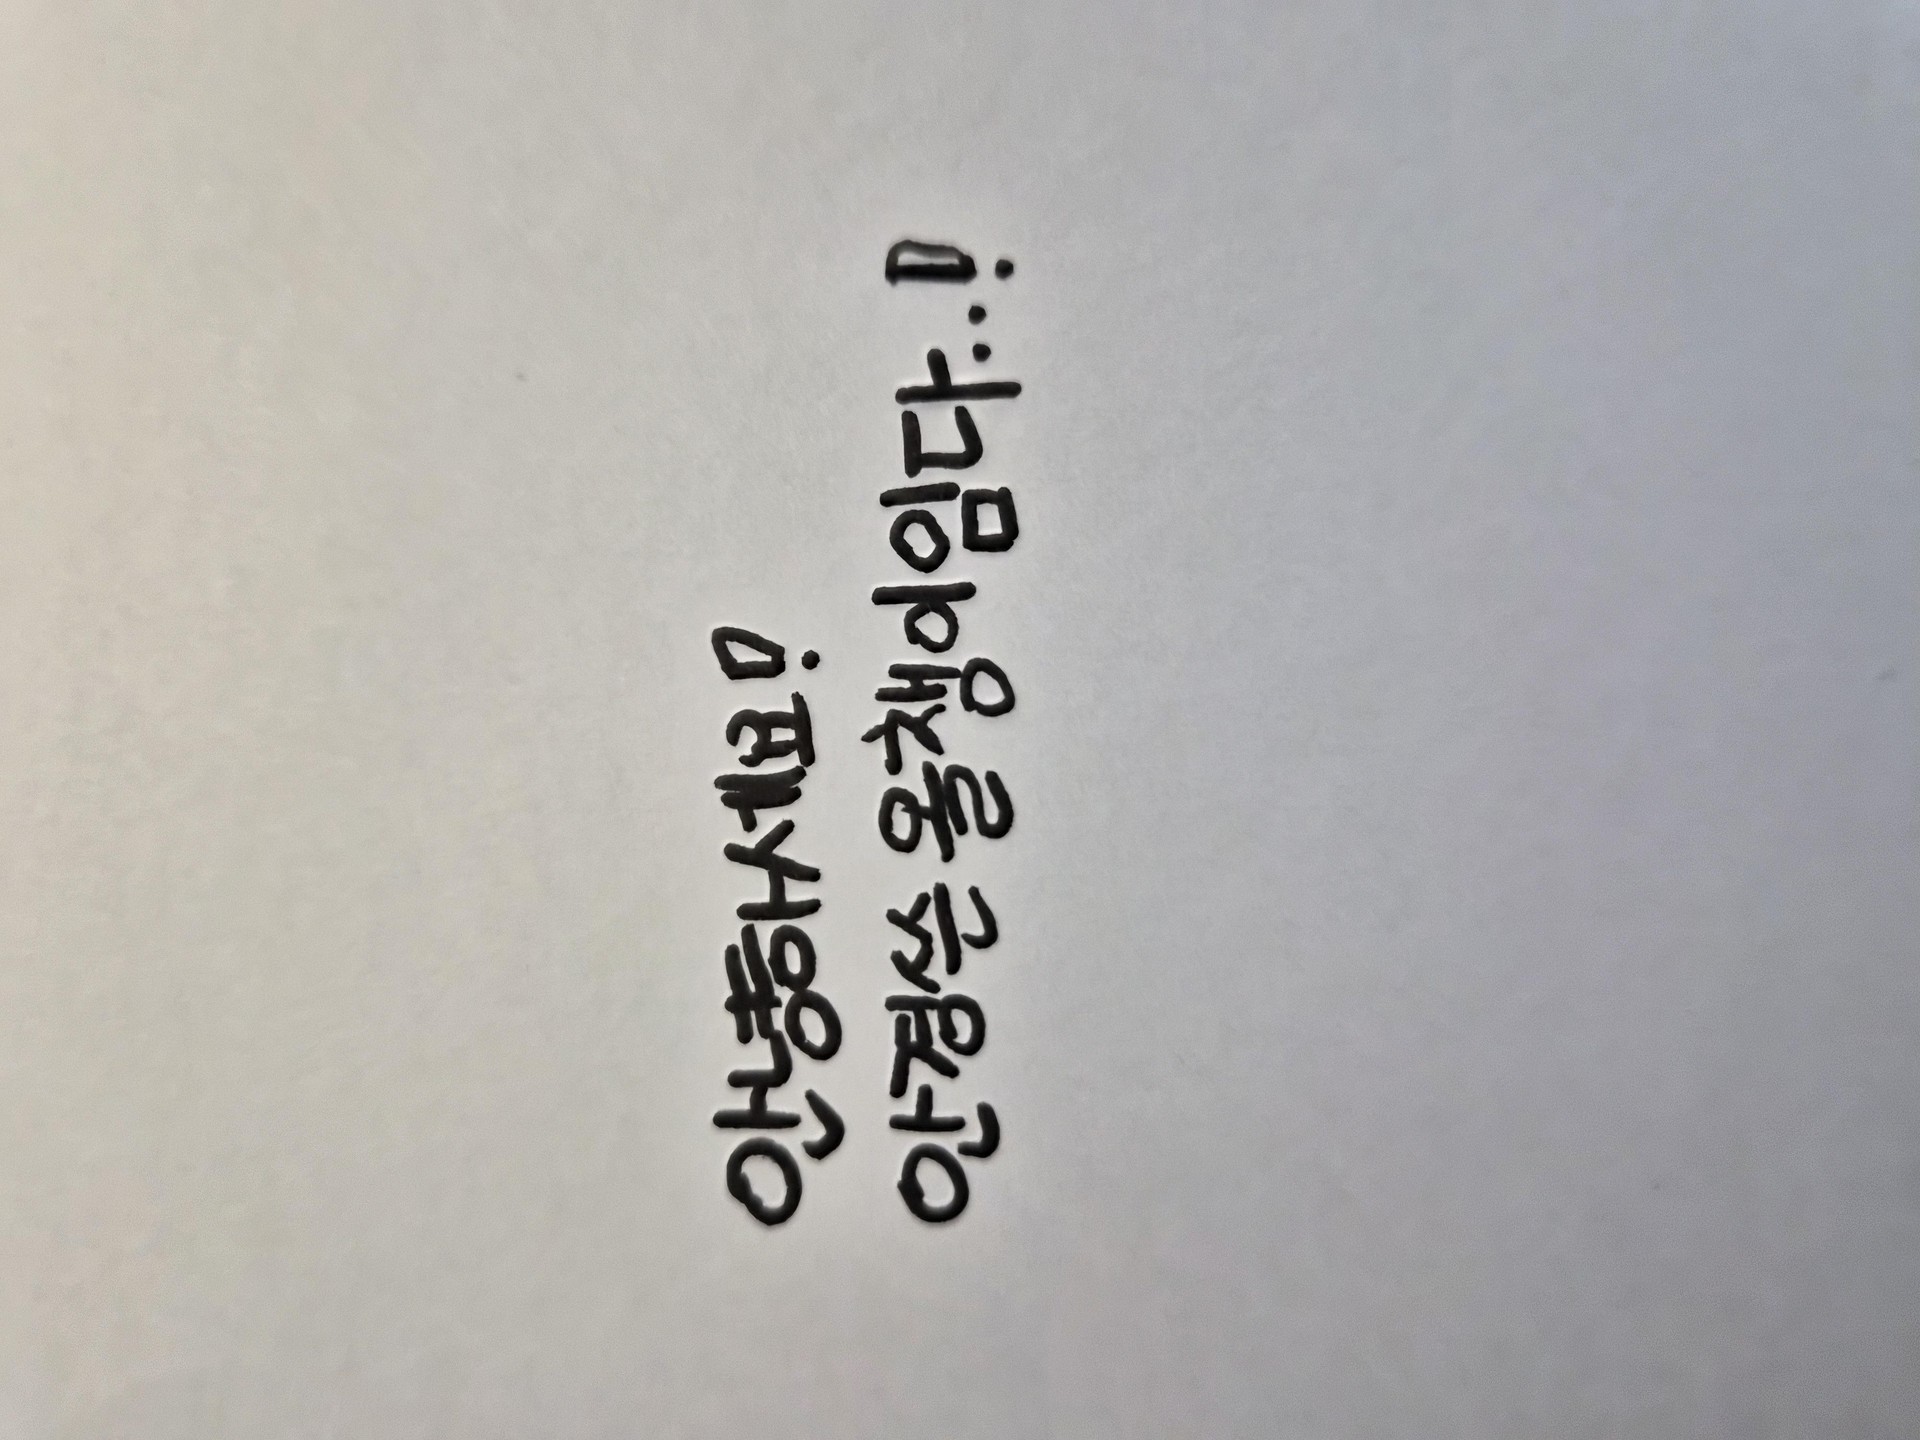 안녕하세요!
안경쓴 올챙이임다..!